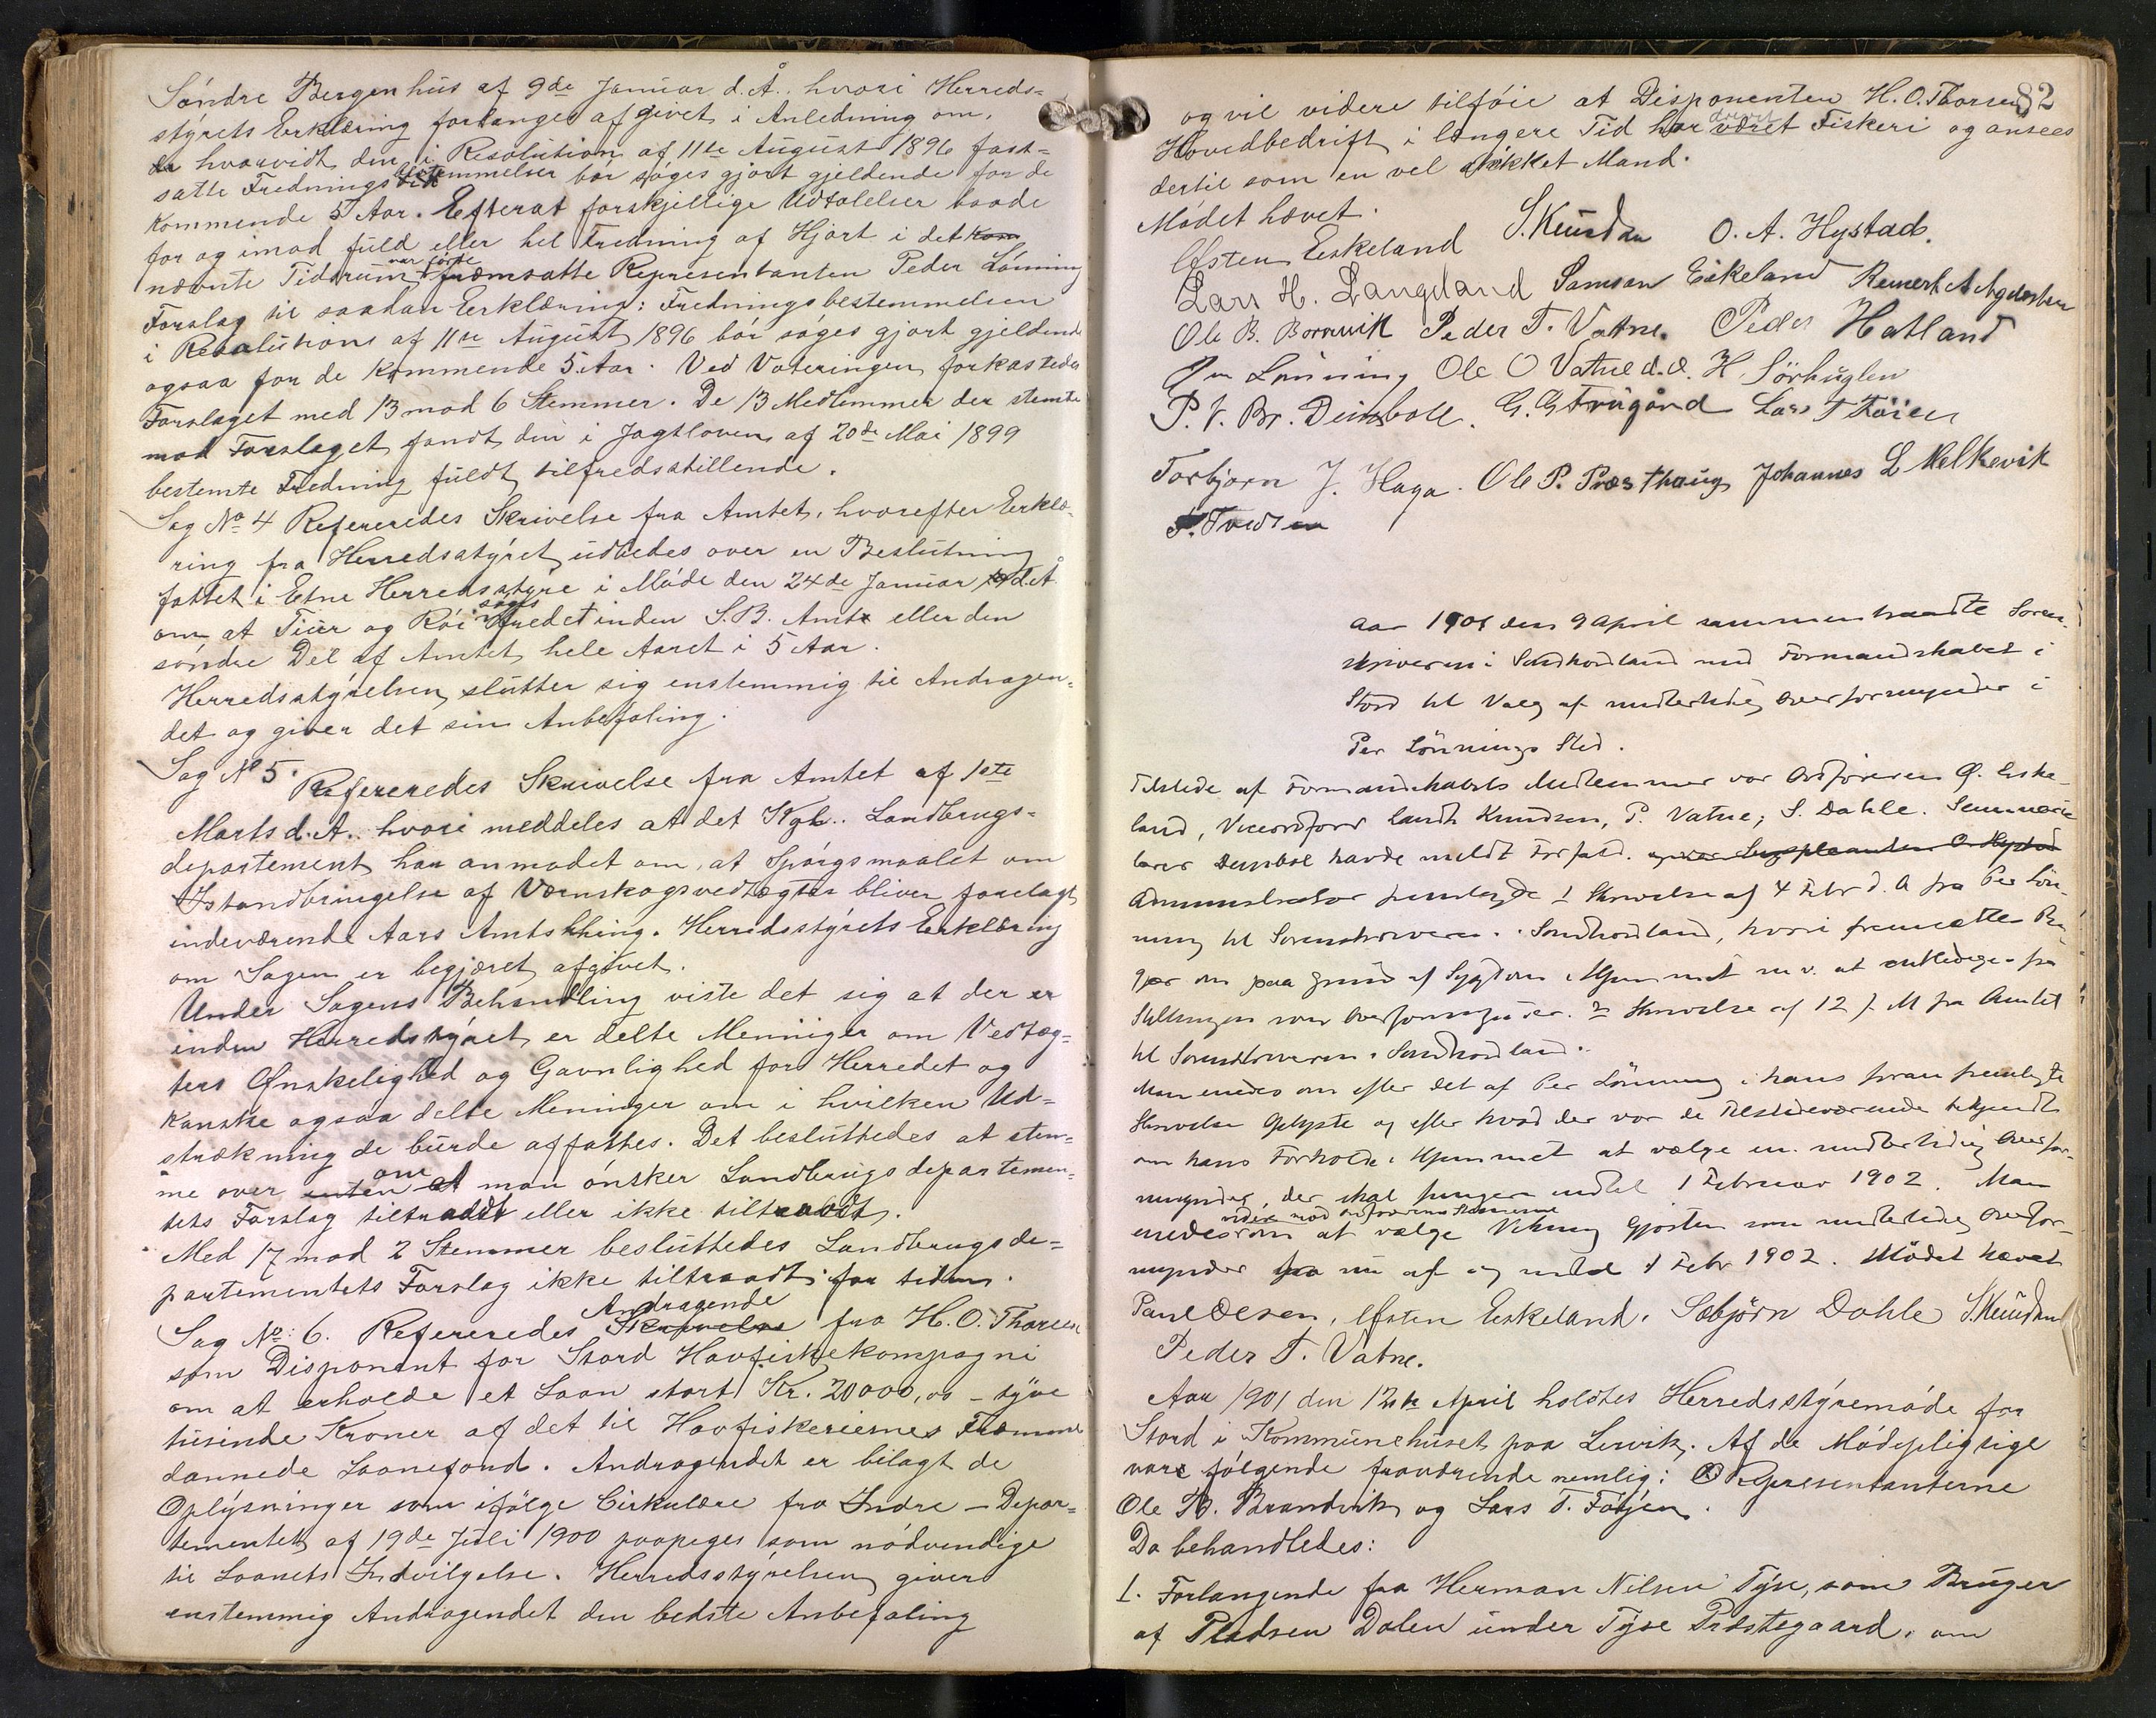 Søndre Bergenhus af 9de Januar d.A. hvori Herreds=
styrets Erklæring forlanges afgivet i Anledning om,
hvorvidt den i Resolution af 11te August 1896 fast=
satte Fredningsbestemmelser bør søges gjort gjeldende for de
kommende 5 Aar. Efterat forskjellige Udtalelser baade
for og imod fuld eller hel Fredning af Hjort i det
nævnte Tidsrum var førte fremsatte Representanten Peder Lønning
Forslag til saadan Erklæring: Fredningsbestemmelsen
i Resolutions af 11te August 1896 bør søges gjort gjeldende
ogsaa for de kommende 5 Aar. Ved Voteringen forkastedes
Forslaget med 13 mod 6 Stemmer. De 13 Medlemmer der stemte
mod Forslaget fandt den i Jagtloven af 20de Mai 1899
bestemte Fredning fuldt tilfredsstillende.
Sag No 4 Refereredes Skrivelse fra Amtet, hvorefter Erklæ=
ring fra Herredsstyret udbedes over en Beslutning
fattet i Etne Herredsstyre i Møde den 24de Januar d.A.
om at Tiur og Røi søges fredet inden S.B. Amt eller den
søndre Del af Amtet hele Aaret i 5 Aar.
Herredsstyrelsen slutter sig enstemmig til Andragen=
det og giver det sin Anbefaling.
Sag No 5. Refereredes Skrivelse fra Amtet af 1ste
Marts d.A. hvori meddeles at det Kgl. Landbrugs=
departement har anmodet om, at Spørgsmaalet om
Istandbringelse af Værnskogsvedtægter bliver forelagt
indeværende Aars Amtsthing. Herredsstyrets Erklæring
om Sagen er begjæret afgivet.
Under Sagens Behandling viste det sig at der er
inden Herredstyret er delte Meninger om Vedtæg=
ters Ønskelighed og Gavnlighed for Herredet og
kanske ogsaa delte Meninger om i hvilken Ud=
strækning de burde affattes. Det besluttedes at stem=
me over enten om at man ønsker Landbrugsdepartemen=
tets Forslag tiltraadt eller ikke tiltraadt.
Med 17 mod 2 Stemmer besluttedes Landbrugsde=
partementets Forslag ikke tiltraadt for tiden.
Sag No: 6. Refereredes Skrivelse Andragende fra H.O. Thorsen
som Disponent for Stord Havfiskekompagni
om at erholde et Laan stort Kr. 20000,00 – tyve
tusinde Kroner af det til Havfiskeriernes Fremme
dannede Laanefond. Andragendet er bilagt de
Oplysninger som ifølge Cirkulære fra Indre – Depar=
tementet af 19de Juli 1900 paapeges som nødvendige
til Laanets Indvilgelse. Herredsstyrelsen giver
enstemmig Andragendet den bedste Anbefaling
82
og vil videre tilføie at Disponenten H.O. Thorsens
Hovedbedrift i længere Tid har været Fiskeri og ansees
dertil som en vel skikket Mand.
Mødet hævet.
Østen Eskeland S. Knudsen O. A. Hystad.
Lars H. Langeland Samson Eskeland
Ole B. Peder T. Vatne. Peder Hatland
Per Lønning Ole O Vatne d.æ. H. Sørhuglen
P. V. Br. Deinboll. G. G Frugård Lars T
Torbjørn J. Haga. Ole P. Præsthaug Johannes L Melkevik
Aar 1901 den 9 April sammentraadte Soren-
skriveren i Søndhordland med Formandskabet i
Stord til Valg af midlertidig Overformynder i
Per Lønnings Sted.
Tilstede af Formandskabets Medlemmer var Ordføreren Ø. Eske-
land, Viceordfører landh Knudsen, P. Vatne, S. Dahle. Seminarie
lærer Deinbol havde meldt Forfald.
Administrator fremlagde 1 Skrivelse af 4 Febr d. A fra Per Løn-
ning til Sorenskriveren i Søndhordland, hvori fremsættes Be-
gjær om paa Grund af Sygdom i Hjemmet m.v. at entlediges fra
Stillingen som Overformynder. 2 Skrivelse af 12 f. M fra Amtet
til Sorenskriveren i Søndhordland.
Man enedes om efter det af Per Lønning i hans foran fremlagte
Skrivelse Oplyste og efter hvad der var de Tilstedeværende bekjendt
om hans Forholde i Hjemmet at vælge en midlertidig Overfor-
mynder, der skal fungere indtil 1 Februar 1902. Man
enedes om at vælge Viking Gjøsten som midlertidig Overfor-
mynder fra nu af og indtil 1 Febr 1902. Mødet hævet
Paul Olsen, Østen Eskeland. Sæbjørn Dahle S. Knudsen
Peder T. Vatne.
Aar 1901 den 12te April holdtes Herredsstyremøde for
Stord i Kommunehuset paa Lervik. Af de Mødepligtige
vare følgende fraværende nemlig: Representanterne
Ole B. Brandvik og Lars T. Føien.
Da behandledes:
1. Forlangende fra Herman Nilsen Tyse, som Bruger
af Pladsen Dalen under Tyse Præstegaard, om